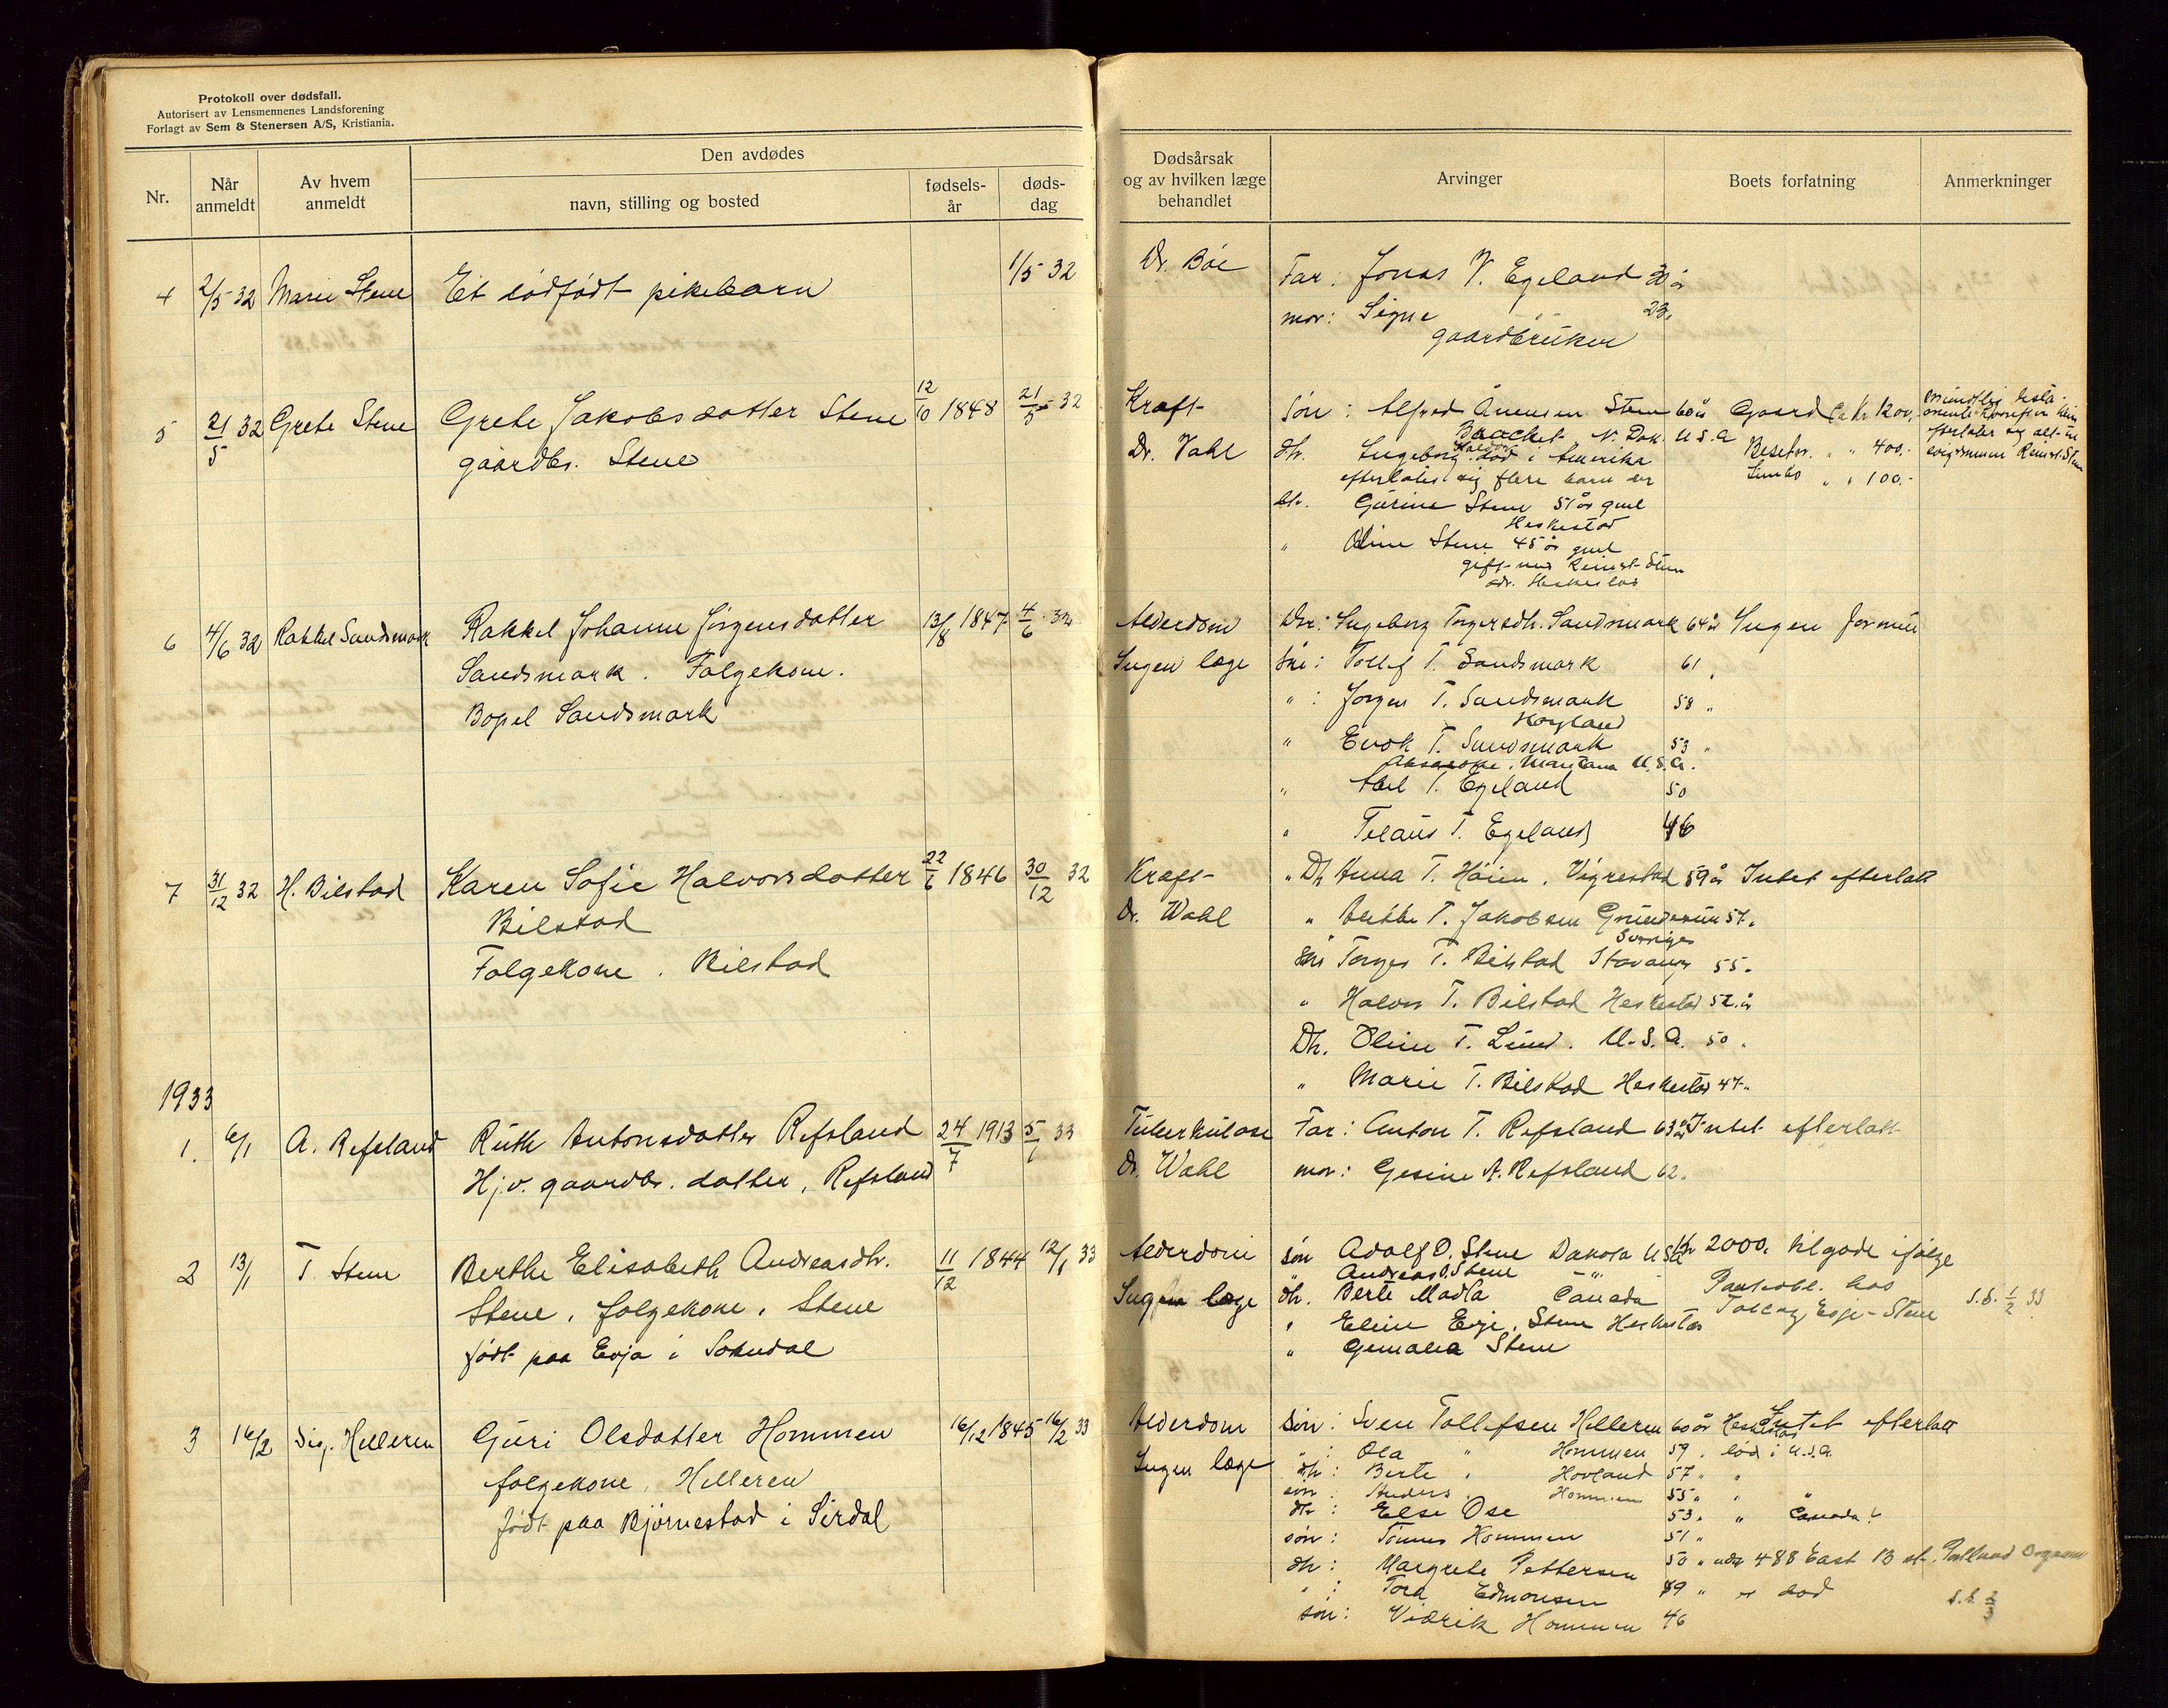 Protokoll over dødsfall.
Autorisert av Lensmennenes Landsforening
Forlagt av Sem & Stenersen A/S, Kristiania.
Nr.
Når anmeldt
Av hvem anmeldt
Den avdødes
navn, stilling og bosted
fødsels-år
døds-dag
Dødsårsak og av hvilken læge behandlet
Arvinger
Boets forfatning
Anmerkninger
4 2/5 32 Marie Stene Et dødfødt pikebarn 1/5 32
Dr. Böe Far: Jonas V. Egeland 30 år
mor: Signe 23.
gaardbruker
5 21/5 32 Grete Stene Grete Jakobsdatter Stene 12/10 1848 21/5 32
gaardbr. Stene
Kræft Søn: Alfred Stene 60 år Gaard Ca Kr. 1200,
N. Dak. U S A
Dr. Vahl dtr. Ingeborg død i Amerika Besetn. " " 400.-
efterlater sig flere barn der Innbo " " 100.-
dtr. Gurine Stene 51 år gml
Heskestad
" Oline Stene 45 år gml
gift med Reinert Stene
adr. Heskestad
6 4/6 32 Rakkel Sandsmark Rakkel Johanne Jørgensdatter 13/8 1847 4/6 32
Sandsmark. Folgekone.
Bopel Sandsmark
Alderdom Dtr: Ingeborg Torgersdtr. Sandsmark 64 år Ingen formue
Ingen læge Søn: Tollef T. Sandsmark 61 "
" : Jørgen T. Sandsmark 58 "
Høyland
" Enok T. Sandsmark 53 "
Absarokee, Montana U.S.A.
" Abel T. Egeland 50
" T. Egeland 46
7 31/12 32 H. Bilstad Karen Sofie Halvorsdatter 22/6 1846 30/12 32
Bilstad
Folgekone. Bilstad
Kræft " Dtr Anna T. Høien, Vigrestad 59 år Intet efterlatt
Dr. Wahl " T. Jakobsen Grundsund 57.
Sverige
Søn Torger T. Bilstad Stavanger 55.
" Halvor T. Bilstad Heskestad 52. år
Dtr. Oline T. Lund. U.S.A. 50.
" Marie T. Bilstad Heskestad 47.
1933
1. 6/1 A. Refsland Ruth Antonsdatter Refsland 24/7 1913 5/1 33
Hjv. gaardbr. datter, Refsland
Tuberkulose Far: Anton T. Refsland 63 år Intet efterlatt
Dr. Wahl mor: Gesine A. Refsland 62.
2 13/1 T. Stene Berthe Elisabeth Andreasdtr. 11/12 1844 12/1 33
Stene, folgekone, Stene
født paa Evja i Sokndal
Alderdom søn Adolf O. Stene Dakota USA Kr 2000, tilgode ifølge
" Andreas O. Stene " Panteobl. hos
Ingen læge dtr. Berte Madla Canada Tollag Eije - Stene
" Eline Eije, Stene Heskestad S.b. 1/2 33
" Stene
3 16/2 Sig. Helleren Guri Olsdatter Hommen 16/12 1845 16/2 33
folgekone, Helleren
født paa Bjørnestad i Sirdal
Alderdom søn: Sven Tollefsen Helleren 60 år Heskestad Intet efterlatt
" : Ola " Hommen 59 " død i U.S.A.
Ingen læge dtr: Berte " Hovland 57 " "
søn: Anders " Hommen 55 " " "
dtr: Else Ose 53. " Canada
søn: Tønnes Hommen 51 "
dtr: Margrete Pettersen 50 " adr 488 East 13 st. Portland Oregon
" : Tora Edmonsen 49 " er død
søn: Vidrik Hommen 46
S.b. 2/3